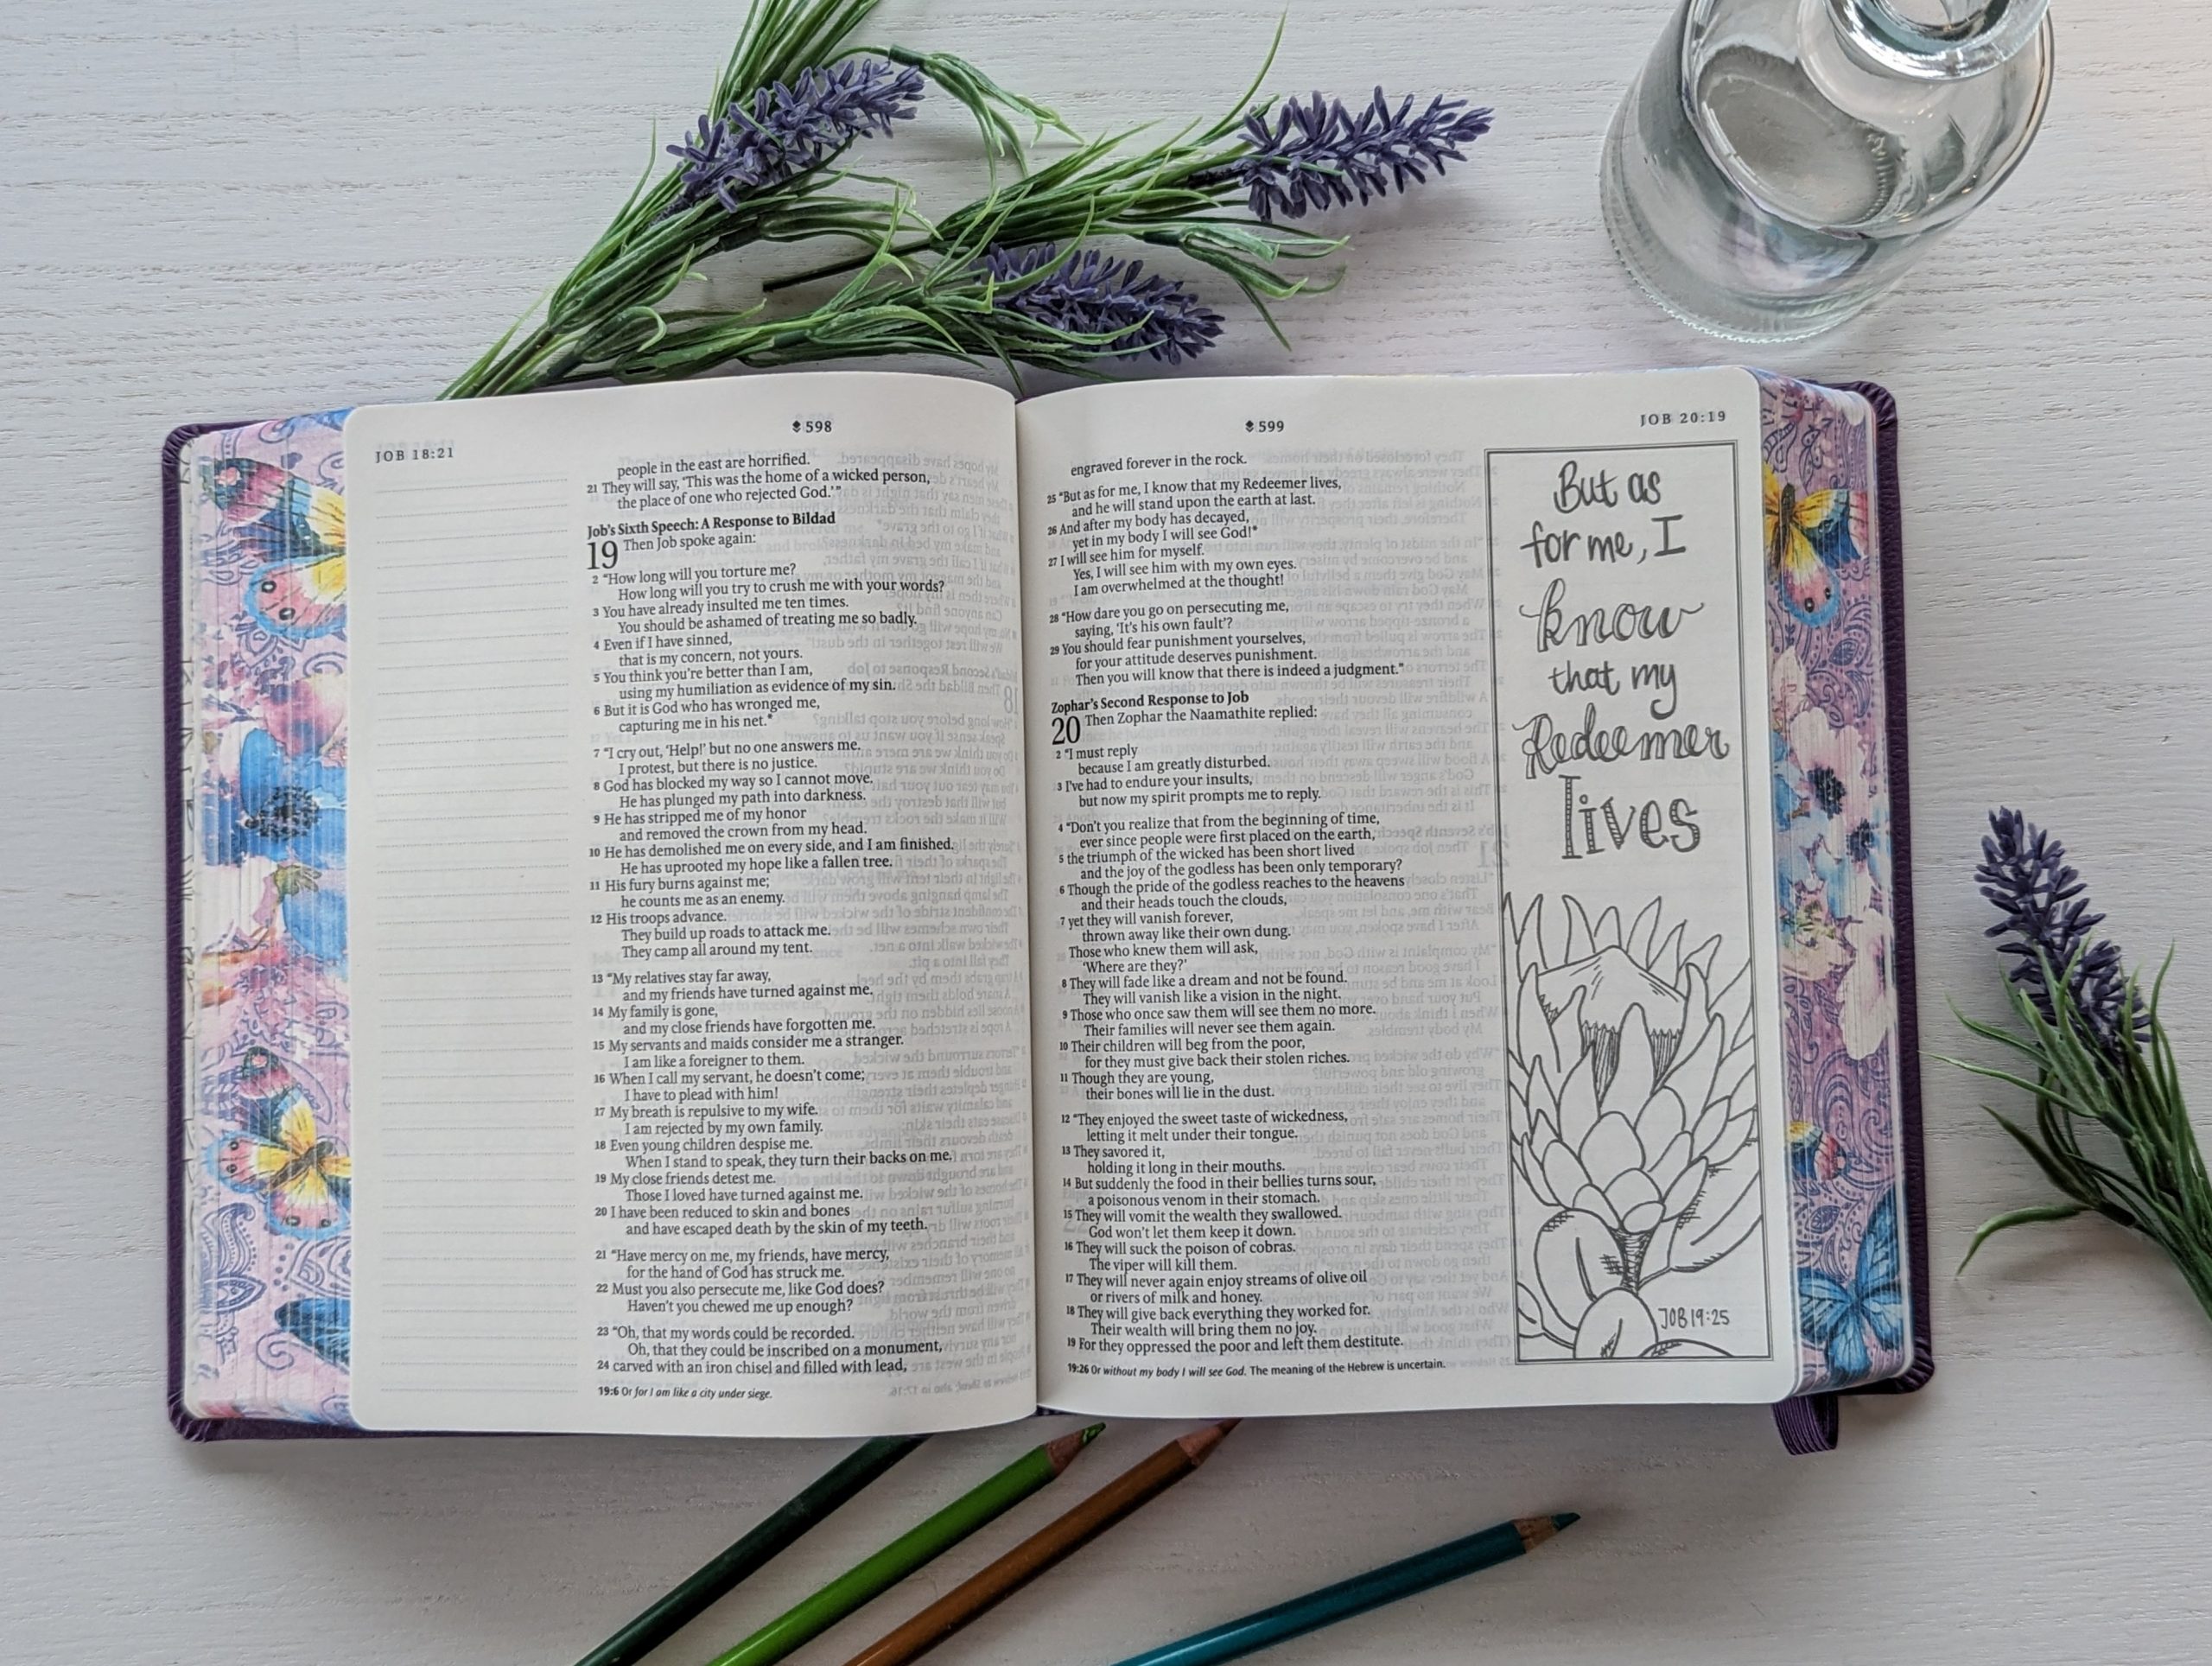 JOB 18:21
598
people in the east are horrified.
21 They will say, ‘This was the home of a wicked person,
the place of one who rejected God.’”
Job’s Sixth Speech: A Response to Bildad
19 Then Job spoke again:
2 “How long will you torture me?
How long will you try to crush me with your words?
3 You have already insulted me ten times.
You should be ashamed of treating me so badly.
4 Even if I have sinned,
that is my concern, not yours.
5 You think you’re better than I am,
using my humiliation as evidence of my sin.
6 But it is God who has wronged me,
capturing me in his net.*
7 “I cry out, ‘Help!’ but no one answers me.
I protest, but there is no justice.
8 God has blocked my way so I cannot move.
He has plunged my path into darkness.
9 He has stripped me of my honor
and removed the crown from my head.
10 He has demolished me on every side, and I am finished.
He has uprooted my hope like a fallen tree.
11 His fury burns against me;
he counts me as an enemy.
12 His troops advance.
They build up roads to attack me.
They camp all around my tent.
13 “My relatives stay far away,
and my friends have turned against me.
14 My family is gone,
and my close friends have forgotten me.
15 My servants and maids consider me a stranger.
I am like a foreigner to them.
16 When I call my servant, he doesn’t come;
I have to plead with him!
17 My breath is repulsive to my wife.
I am rejected by my own family.
18 Even young children despise me.
When I stand to speak, they turn their backs on me.
19 My close friends detest me.
Those I loved have turned against me.
20 I have been reduced to skin and bones
and have escaped death by the skin of my teeth.
21 “Have mercy on me, my friends, have mercy,
for the hand of God has struck me.
22 Must you also persecute me, like God does?
Haven’t you chewed me up enough?
23 “Oh, that my words could be recorded.
Oh, that they could be inscribed on a monument,
24 carved with an iron chisel and filled with lead,
19:6 Or for I am like a city under siege.
599
JOB 20:19
engraved forever in the rock.
25 “But as for me, I know that my Redeemer lives,
and he will stand upon the earth at last.
26 And after my body has decayed,
yet in my body I will see God!*
27 I will see him for myself.
Yes, I will see him with my own eyes.
I am overwhelmed at the thought!
28 “How dare you go on persecuting me,
saying, ‘It’s his own fault’?
29 You should fear punishment yourselves,
for your attitude deserves punishment.
Then you will know that there is indeed a judgment.”
Zophar’s Second Response to Job
20 Then Zophar the Naamathite replied:
2 “I must reply
because I am greatly disturbed.
3 I’ve had to endure your insults,
but now my spirit prompts me to reply.
4 “Don’t you realize that from the beginning of time,
ever since people were first placed on the earth,
5 the triumph of the wicked has been short lived
and the joy of the godless has been only temporary?
6 Though the pride of the godless reaches to the heavens
and their heads touch the clouds,
7 yet they will vanish forever,
thrown away like their own dung.
Those who knew them will ask,
‘Where are they?’
8 They will fade like a dream and not be found.
They will vanish like a vision in the night.
9 Those who once saw them will see them no more.
Their families will never see them again.
10 Their children will beg from the poor,
for they must give back their stolen riches.
11 Though they are young,
their bones will lie in the dust.
12 “They enjoyed the sweet taste of wickedness,
letting it melt under their tongue.
13 They savored it,
holding it long in their mouths.
14 But suddenly the food in their bellies turns sour,
a poisonous venom in their stomach.
15 They will vomit the wealth they swallowed.
God won’t let them keep it down.
16 They will suck the poison of cobras.
The viper will kill them.
17 They will never again enjoy streams of olive oil
or rivers of milk and honey.
18 They will give back everything they worked for.
Their wealth will bring them no joy.
19 For they oppressed the poor and left them destitute.
19:26 Or without my body I will see God. The meaning of the Hebrew is uncertain.
But as
for me, I
know
that my
Redeemer
lives
JOB 19:25